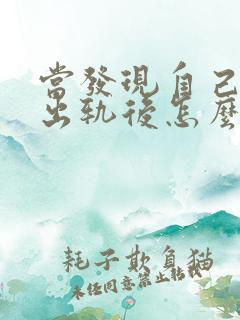 當發現自己
出軌後怎麼
耗子欺負貓
未經同意禁止轉載